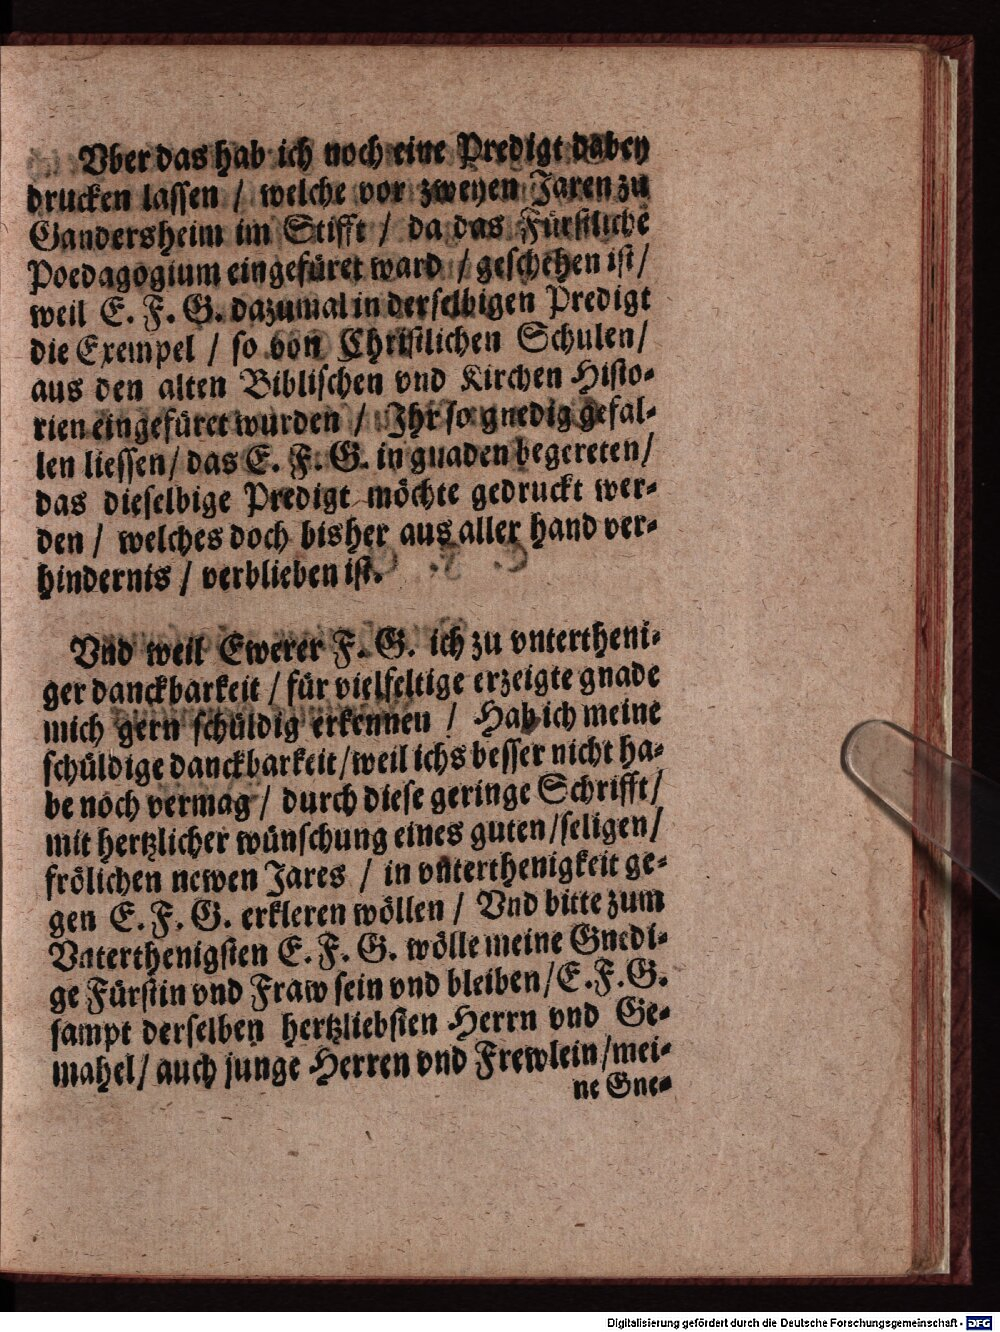 Vber das hab ich noch eine Predigt dabey
drucken lassen / welche vor zweyen Jaren zu
Gandersheim im Stifft / da das Fürstliche
Poedagogium eingefüret ward / geschehen ist /
weil E. F. G. dazumal in derselbigen Predigt
die Exempel / so von Christlichen Schulen /
aus den alten Biblischen vnd Kirchen Histo-
rien eingefüret wurden / Ihr so gnedig gefal-
len liessen / das E. F. G. in gnaden begereten /
das dieselbige Predigt möchte gedruckt wer-
den / welches doch bisher aus aller hand ver-
hindernis / verblieben ist.
Vnd weil Ewerer F. G. ich zu vntertheni-
ger danckbarkeit / für vielfeltige erzeigte gnade
mich gern schüldig erkennen / Hab ich meine
schüldige danckbarkeit / weil ichs besser nicht ha-
be noch vermag / durch diese geringe Schrifft /
mit hertzlicher wünschung eines guten / seligen /
frölichen newen Jares / in vnterthenigkeit ge-
gen E. F. G. erkleren wöllen / Vnd bitte zum
Vnterthenigsten E. F. G. wölle meine Gnedi-
ge Fürstin vnd Fraw sein vnd bleiben / E. F. G.
sampt derselben hertzliebsten Herrn vnd Ge-
mahel / auch junge Herren vnd Frewlein / mei-
ne Gne-
Digitalisierung gefördert durch die Deutsche Forschungsgemeinschaft - DFG